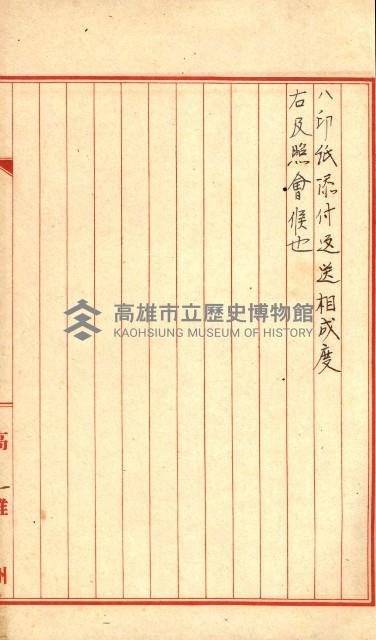 八印紙添付返送相成度
右及照會候也
高雄市立歷史博物館
KAOHSIUNG MUSEUM OF HISTORY
高雄州